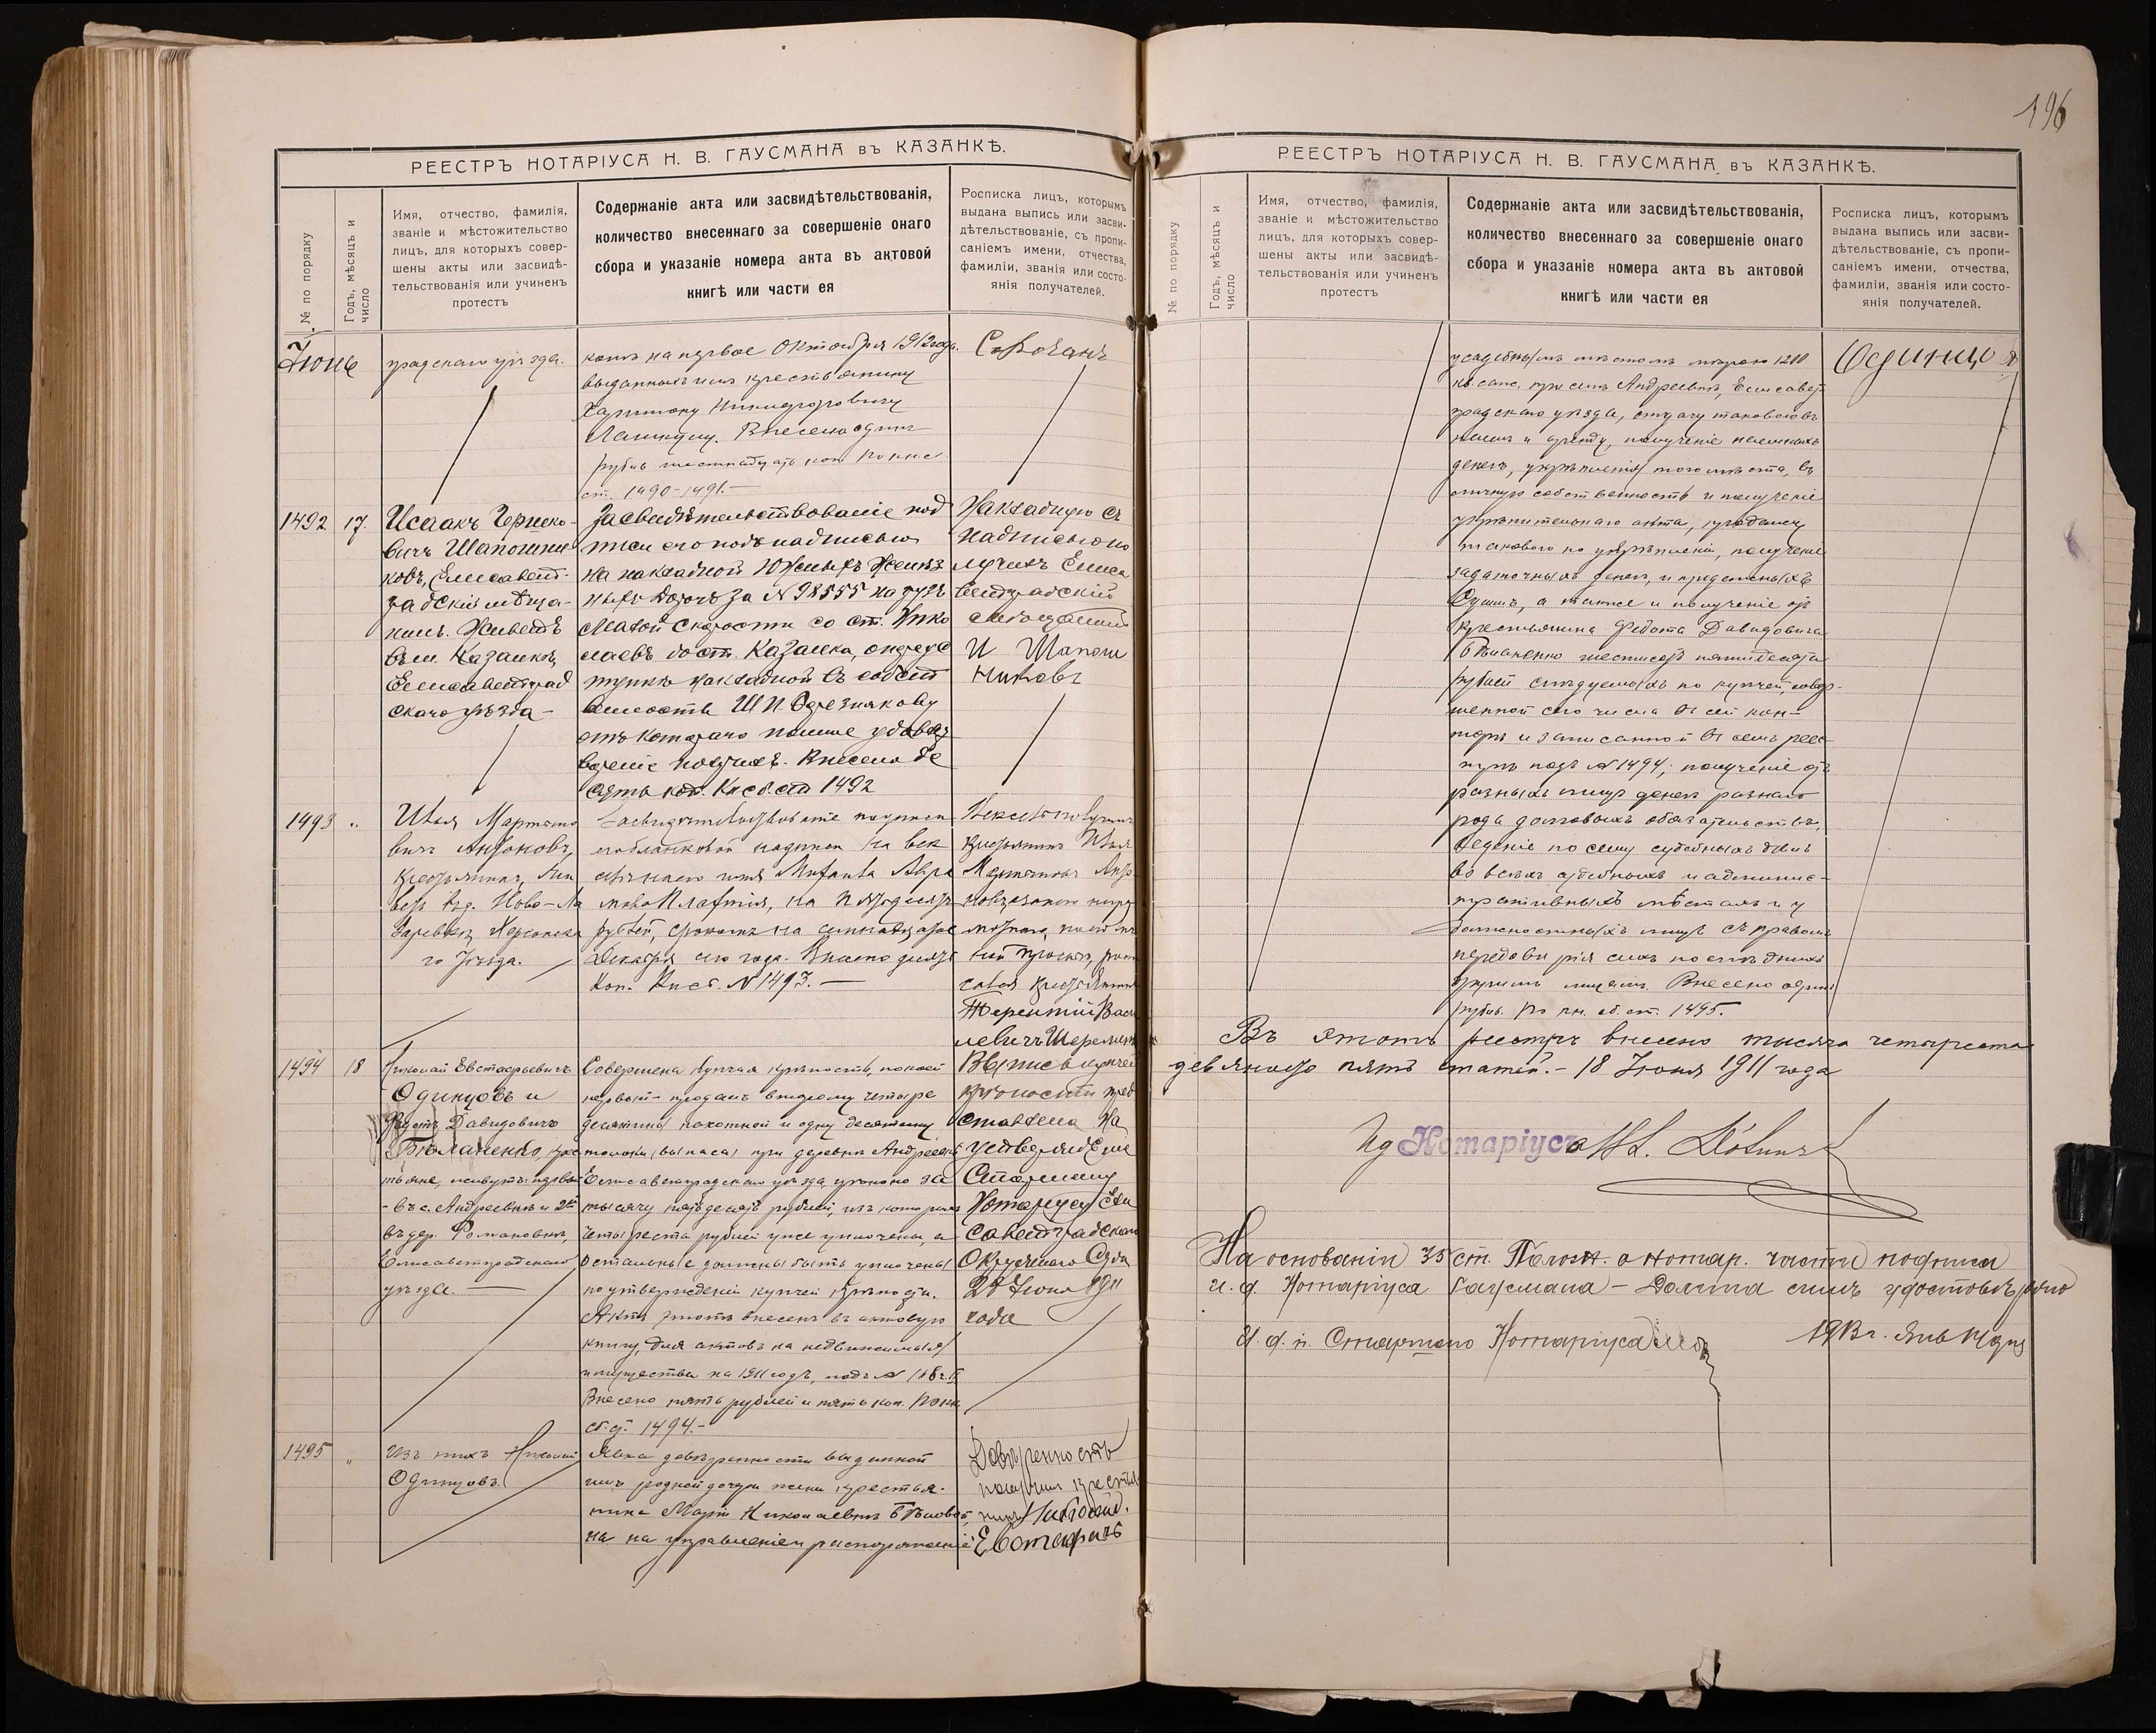 РЕЕСТРЪ НОТАРІУСА Н. В. ГАУСМАНА въ КАЗАНКѢ.
№ по порядку
Годъ, мѣсяцъ и
число
Имя, отчество, фамилія,
званіе и мѣстожительство
лицъ, для которыхъ совер-
шены акты или засвидѣ-
тельствованія или учиненъ
протестъ
Содержаніе акта или засвидѣтельствованія,
количество внесеннаго за совершеніе онаго
сбора и указаніе номера акта въ актовой
книгѣ или части ея
Росписка лицъ, которымъ
выдана выпись или засви-
дѣтельствованіе, съ пропи-
саніемъ имени, отчества,
фамиліи, званія или состо-
янія получателей.
Іюнь
градскаго уѣзда.
комъ на первое Октября 1912 года.
выданныхъ имъ крестьянину
Харитону Никифоровичу
Внесено одинъ
рубль шестнадцать коп. По кн. с
ст. 1490-1491.-
1492
17.
Исаакъ
вичъ Шапошни
ковъ, Елисавет-
градскій мѣща-
нинъ. Живетъ
въ м. Казанкѣ,
Елисаветград
скаго уѣзда-
Засвидѣтельствованіе под
писи его подъ надписью
на накладной Южныхъ Желѣз
ныхъ Дорогъ за № 98555 на грузъ
Малой скорости со ст. Нико
лаевъ до ст. Казанка, о
накладной въ собст
венность Ш И Березнякову
отъ котораго полное удовлет
вореніе получилъ. Внесено де
сять коп. Кн сб ст 1492
Накладную съ
надписью по
лучилъ Елиса
ветградскій
мѣщанинъ
И Шапош
никовъ
1493
"
Илья Мартыно
вичъ Антоновъ,
крестьянинъ, жи
ветъ въ д. Ново-Ла
заревкѣ, Херсонска
го уѣзда.
Засвидѣтельствованіе подписи
его бланковой надписи на век
рублей, срокомъ на семнадцатое
Декабря сего года. Внесено десять
коп. Кн сб. № 1493.-
Вексель получилъ
крестьянинъ Илья
Мартыновъ Анто
новъ, а за него негра
мотнаго, по его лич
ной просьбѣ, роспи
сался крестьянинъ
Терентій Васи
левичъ
1494
18
Николай Евстафьевичъ
Одинцовъ и
Федотъ Давидовичъ
Бѣланенко, кре
стьяне, живутъ: первый
- въ с. Андреевкѣ и 2й
въ дер. Романовкѣ,
Елисаветградскаго
уѣзда.-
Совершена купчая крѣпость, по коей
первый продалъ второму четыре
десятины пахотной и одну десятину
толоки (выпаса) при деревнѣ Андреевкѣ
Елисаветградскаго уѣзда, цѣною за
тысячу пятьдесятъ рублей, изъ которыхъ
четыреста рублей уже уплочены, а
остальные должны быть уплочены
по утвержденіи купчей крѣпости.
Актъ этотъ внесенъ въ актовую
книгу для актовъ на недвижимыя
имущества на 1911 годъ, подъ №
Внесено пять рублей и пять коп. По кн.
сб. ст. 1494.-
Выпись купчей
крѣпости пред
ставлена на
утвержденіе
Старшему
Нотаріусу Ели
саветградскаго
Окружнаго Суда
28 Іюня 1911
года
1495
"
Изъ нихъ Николай
Одинцовъ.
Явка довѣренности выданной
имъ родной дочери жены крестья-
нина Маріи Николаевнѣ Бѣловой,
на на управленіе и распоряженіе
Довѣренность
получилъ крестья
нинъ Николай
Евстафьевъ
196
РЕЕСТРЪ НОТАРІУСА Н. В. ГАУСМАНА въ КАЗАНКѢ.
№ по порядку
Годъ, мѣсяцъ и
число
Имя, отчество, фамилія,
званіе и мѣстожительство
лицъ, для которыхъ совер-
шены акты или засвидѣ-
тельствованія или учиненъ
протестъ
Содержаніе акта или засвидѣтельствованія,
количество внесеннаго за совершеніе онаго
сбора и указаніе номера акта въ актовой
книгѣ или части ея
Росписка лицъ, которымъ
выдана выпись или засви-
дѣтельствованіе, съ пропи-
саніемъ имени, отчества,
фамиліи, званія или состо-
янія получателей.
усадебнымъ мѣстомъ мѣрою 1200
кв. саж. при селѣ Андреевкѣ, Елисавет
градскаго уѣзда, отдачу таковаго въ
наемъ и аренду, полученіе наемныхъ
денегъ, укрѣпленія того мѣста, въ
личную собственность и полученіе
укрѣпительнаго акта, продажу
таковаго по укрѣпленіи, полученіе
задаточныхъ денегъ, и продажныхъ
суммъ, а также и полученіе отъ
крестьянина Федота Давидовича
Бѣланенко шестисотъ пятидесяти
рублей слѣдуемыхъ по купчей, совер-
шенной сего числа въ сей кон-
торѣ и записанной въ семъ реес
трѣ подъ № 1494; полученіе отъ
разныхъ лицъ денегъ разнаго
рода долговыхъ обязательствъ,
веденіе по сему судебныхъ дѣлъ
во всѣхъ судебныхъ и админис-
тративныхъ мѣстахъ и у
должностныхъ лицъ съ правомъ
передовѣрія сихъ послѣднихъ
другимъ лицамъ. Внесено одинъ
рубль. По кн. сб. ст. 1495.
Одинцовъ
Въ этотъ реестръ внесено тысяча четыреста
девяносто пять статей.- 18 Іюня 1911 года
Ид Нотаріуса
На основаніи 35 ст. Полож. о нотар. части подписи
и. д. Нотаріуса Гаусмана - Долина симъ удостовѣряю
И. д. Старшаго Нотаріуса
1913 г. Янв